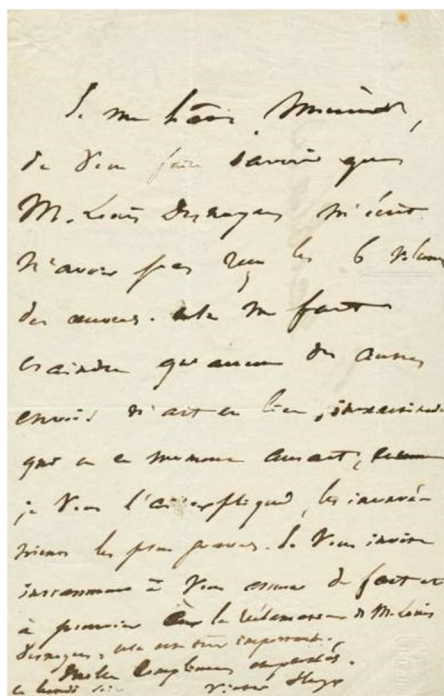 Je me hâte, Monsieur,
de vous faire savoir que
M. Louis Desnoyers m'écrit
n'avoir pas reçu les 6 volumes
des œuvres. Cela me fait
craindre qu'aucun des autres
envois n'ait eu lieu,
qui en ce moment aurait,
je vous l'ai expliqué, les inconvé-
nients les plus graves. Je vous invite
à vous assurer du fait et
à la réclamation de M. Louis
Desnoyers, cela est très important.
Mille compliments empressés.
ce lundi soir Victor Hugo